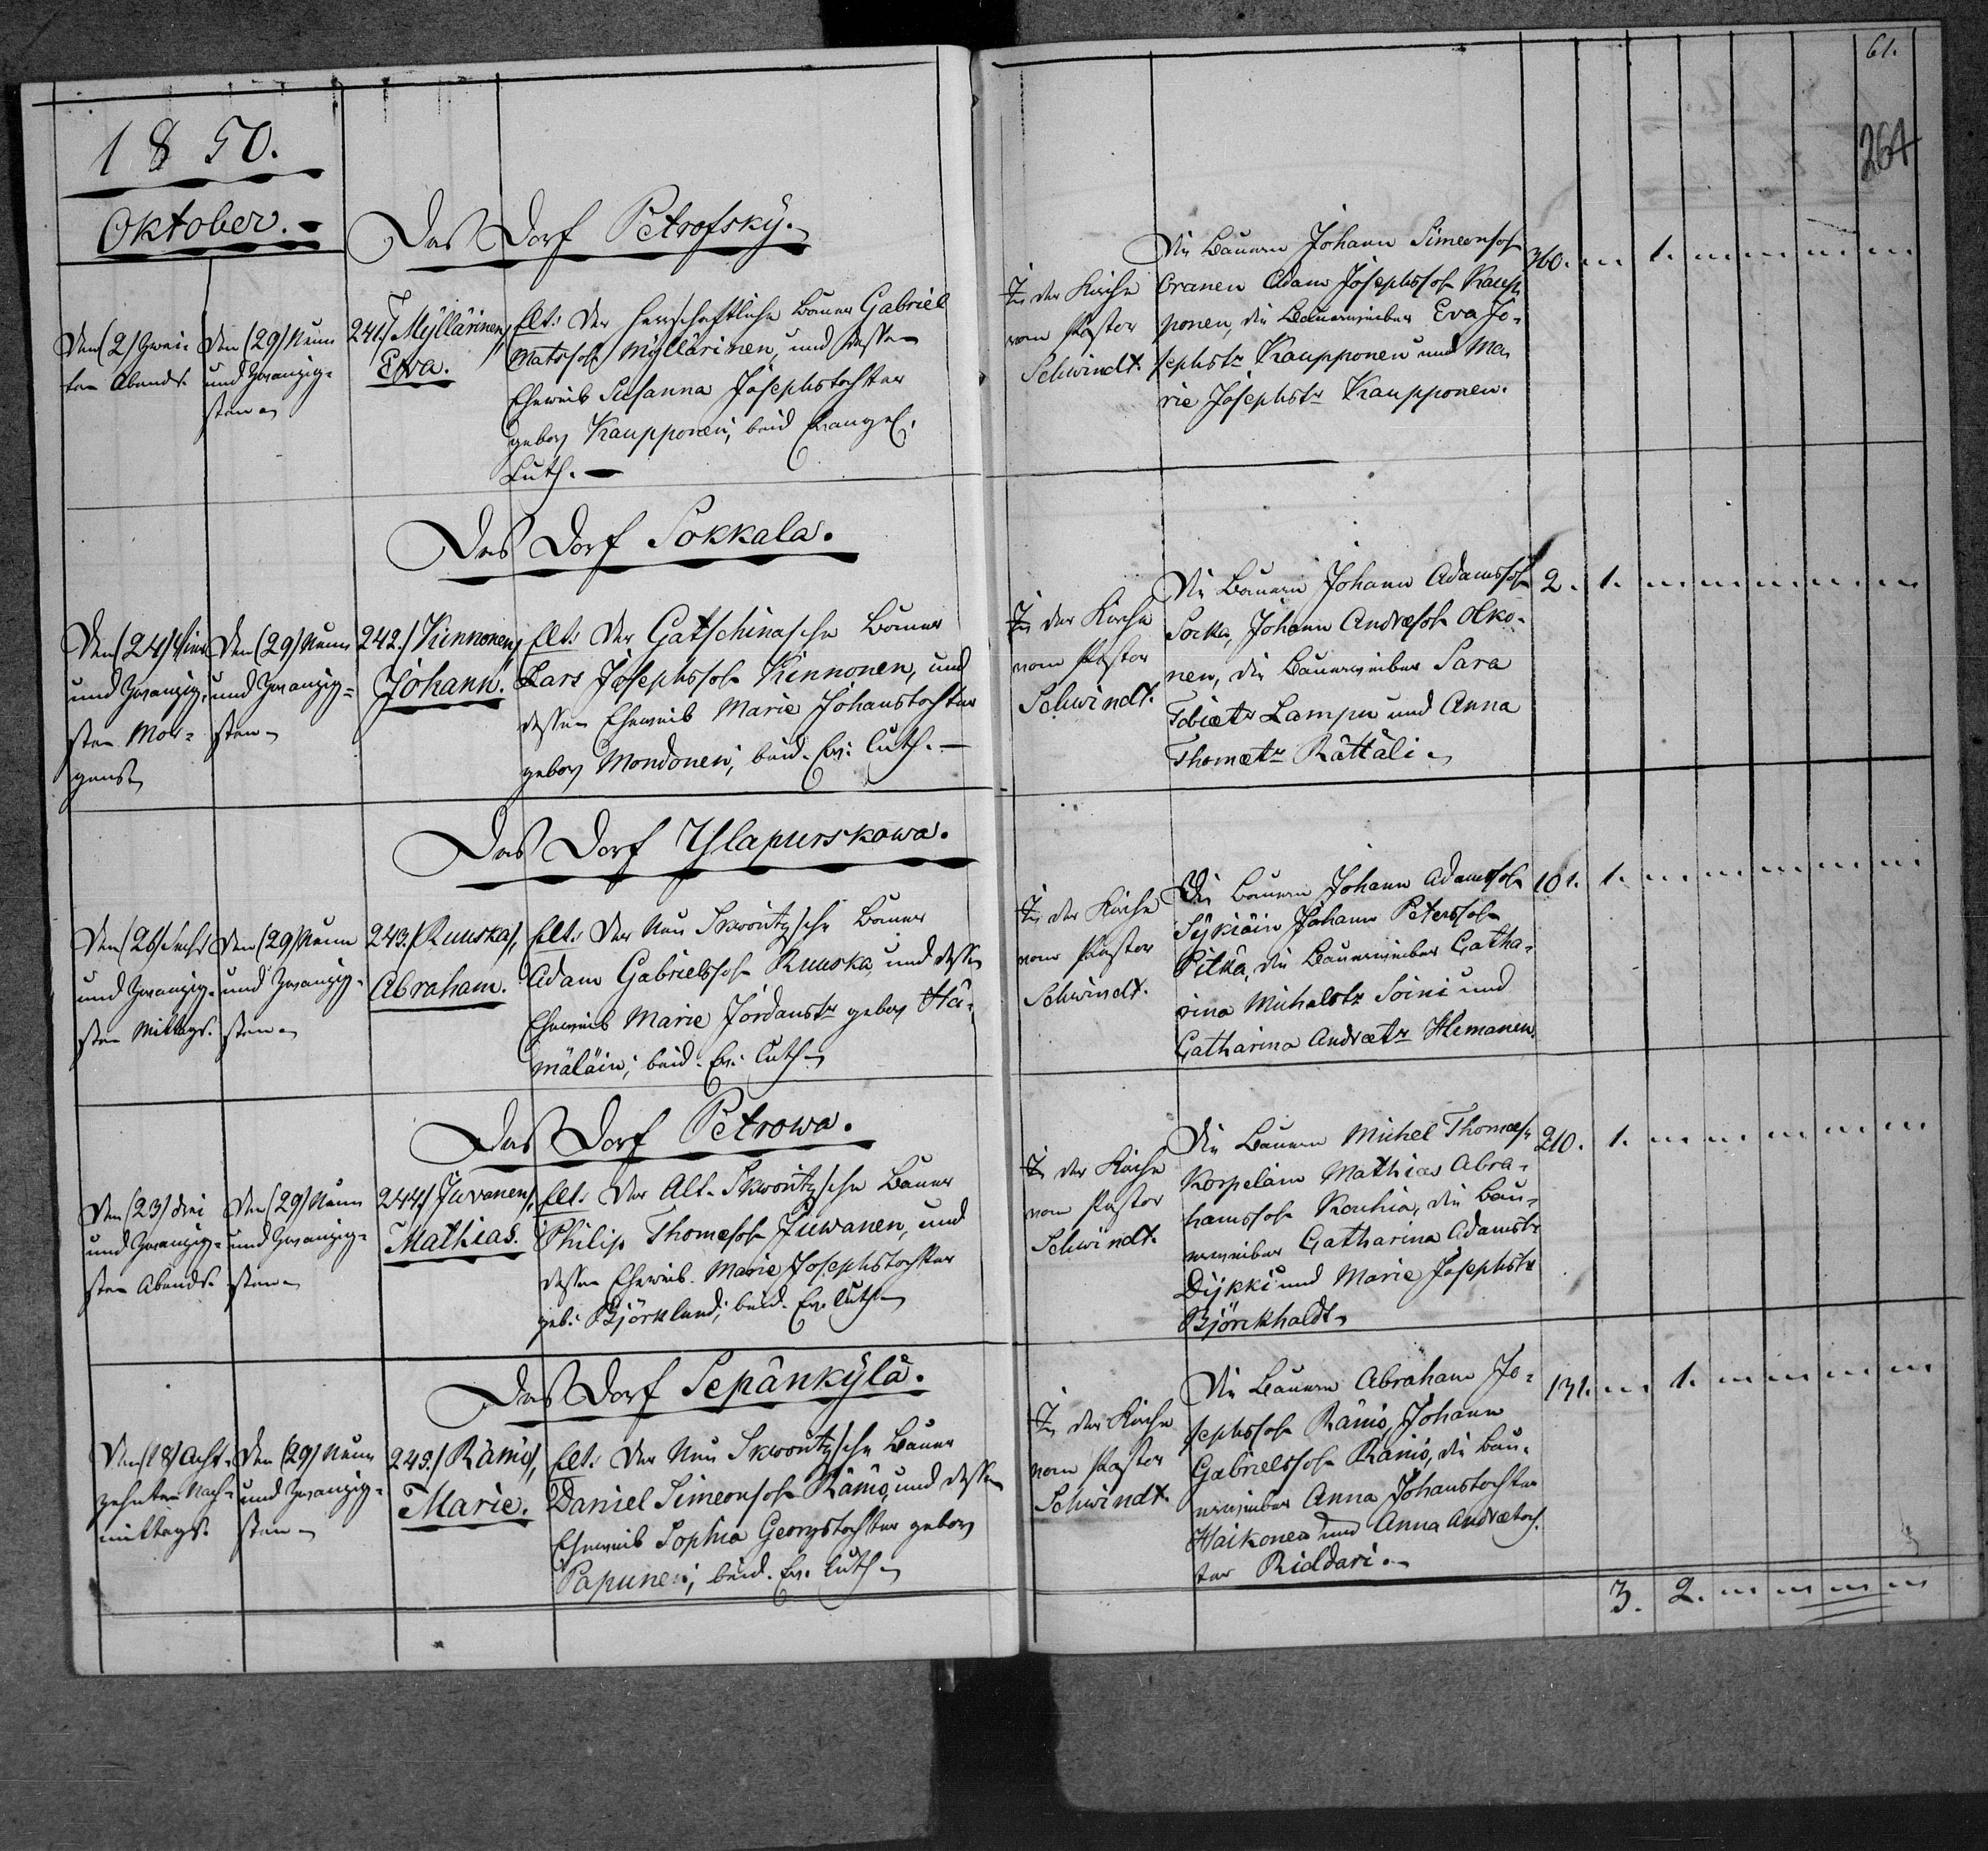 61.
264
1850.
Oktober.
Das Dorf Petrofsky.
Den (2) Zwei-
ten Abends.
Den (29) Neun
und Zwanzig-
sten
241./ Myllärinen,
Eva.
Elt: Der herrschaftliche Bauer Gabriel
Matssohn Myllärinen, und dessen
Eheweib Susanna Josephstochter
gebor. Kaupponen; beid. Evangel.
Luth.
In der Kirche
vom Pastor
Schwindt.
Die Bauern Johann Simeonsoh
Oranen Adam Josephssohn Kaup-
ponen, die Bauerweiber Eva Jo-
sephstr Kaupponen und Ma-
rie Josephstr Kaupponen.
360. " 1. " " " " "
Das Dorf Sokkala.
Den (24) Vier
und Zwanzig-
sten Mor-
gens
Den (29) Neun
und Zwanzig-
sten
242./ Kinnonen,
Johann.
Elt: Der Gatschinasche Bauer
Lars Josephssohn Kinnonen, und
dessen Eheweib Marie Johanstochter
gebor. Mondonen; beid. Ev: Luth.
In der Kirche
vom Pastor
Schwindt.
Die Bauern Johann Adamssoh
Socka, Johann Andreæsoh Olko-
nen, die Bauerweiber Sara
Tobiætr Lampu und Anna
Thomætr Rättäli
2. 1. " " " " " "
Das Dorf Ylapurskowa.
Den (26) Sechs
und Zwanzig-
sten Mittags.
Den (29) Neun
und Zwanzig-
sten
243./ Ruuska,
Abraham.
Elt: Der Neu Skworitzsche Bauer
Adam Gabrielssohn Ruuska, und dessen
Eheweib Marie Jordanstr gebor. Hä-
mäläin; beid. Ev: Luth.
In der Kirche
vom Pastor
Schwindt.
Die Bauern Johann Adamssoh
Sykiäin Johann Peterssohn
Pitkä, die Bauerweiber Catha-
rina Michalstr Soini und
Catharina Andreætr Hemanen.
101. 1. " " " " " "
Das Dorf Petrowa.
Den (23) Drei
und Zwanzig-
sten Abends.
Den (29) Neun
und Zwanzig-
sten
244./ Juvanen,
Mathias.
Elt: Der Alt-Skworitzsche Bauer
Philip Thomæsoh Juwanen, und
dessen Eheweib Marie Josephstochter
geb: Björklund; beid. Ev: Luth.
In der Kirche
vom Pastor
Schwindt.
Die Bauern Michel Thomæs
Korpelain Mathias Abra-
hamssoh Rouhia, die Bau-
erweiber Catharina Adamstr
Dijkki und Marie Josephstr
Björckhaldt
210. 1. " " " " " "
Das Dorf Sepänkylä.
Den (18) Acht-
zehnten Nach-
mittags.
Den (29) Neun
und Zwanzig-
sten
245./ Rämö,
Marie.
Elt: Der Neu Skworitzsche Bauer
Daniel Simeonsoh Rämö, und dessen
Eheweib Sophia Georgstochter gebor.
Papunen; beid. Ev. Luth.
In der Kirche
vom Pastor
Schwindt.
Die Bauern Abraham Jo-
sephssoh Rämö, Johann
Gabrielssoh Rämö, die Bau-
erweiber Anna Johanstochter
Haikonen und Anna Andreætoch-
ter Riddari.
131. " 1. " " " " "
3. 2. " " " "